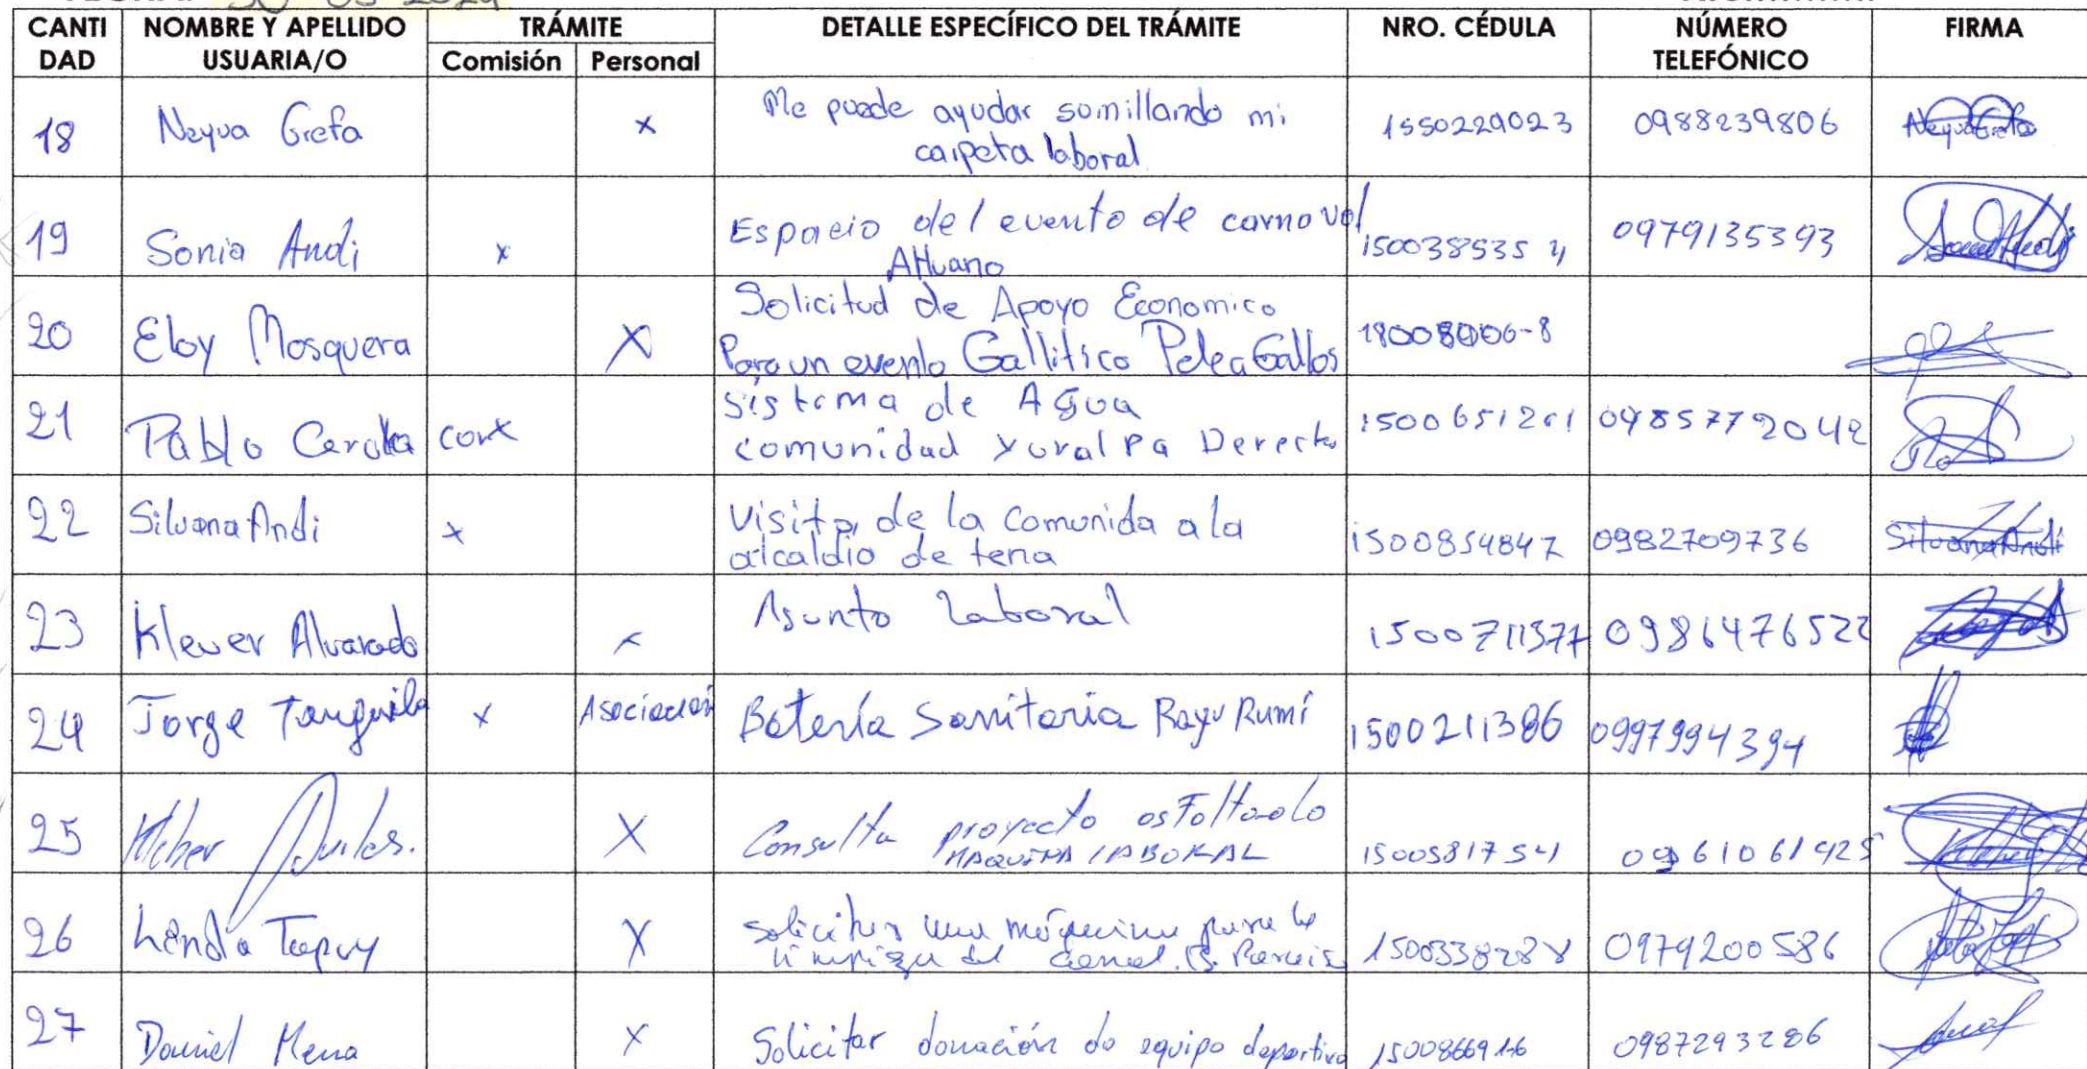 30-05-2024
CANTI DAD | NOMBRE Y APELLIDO USUARIA/O | TRÁMITE | DETALLE ESPECÍFICO DEL TRÁMITE | NRO. CÉDULA | NÚMERO TELEFÓNICO | FIRMA
Comisión | Personal
18 | Neyva Grefa | x | Me puede ayudar sumillando mi carpeta laboral | 1550229023 | 0988239806 | Neyva Grefa
19 | Sonia Andi | x | Espacio del evento de carnaval Ahuano | 1500385354 | 0979135393
20 | Eloy Mosquera | X | Solicitud de Apoyo Economico Para un evento Gallitico Pelea Gallos
21 | Pablo | com | sistema de Agua comunidad Yuralpa Derecho | 0985772042
22 | Silvana Andi | x | Visita de la comunida a la alcaldio de tena | 1500854847 | 0982709736 | Silvana Andi
23 | Klever Alvarado | x | Asunto Laboral | 1500711377 | 0986476522
24 | Jorge Tanguila | x | Asociación | Batería Sanitaria Rayu Rumi | 1500211386 | 0997994394
25 | Kleber | X | Consulta proyecto asfaltado MAQUINA LABORAL | 1500581754 | 0961061925
26 | Tapuy | X | solicitar una máquina para la limpieza del canal. | 0979200586
27 | Daniel Mena | X | Solicitar donación de equipo deportivo | 0987293286